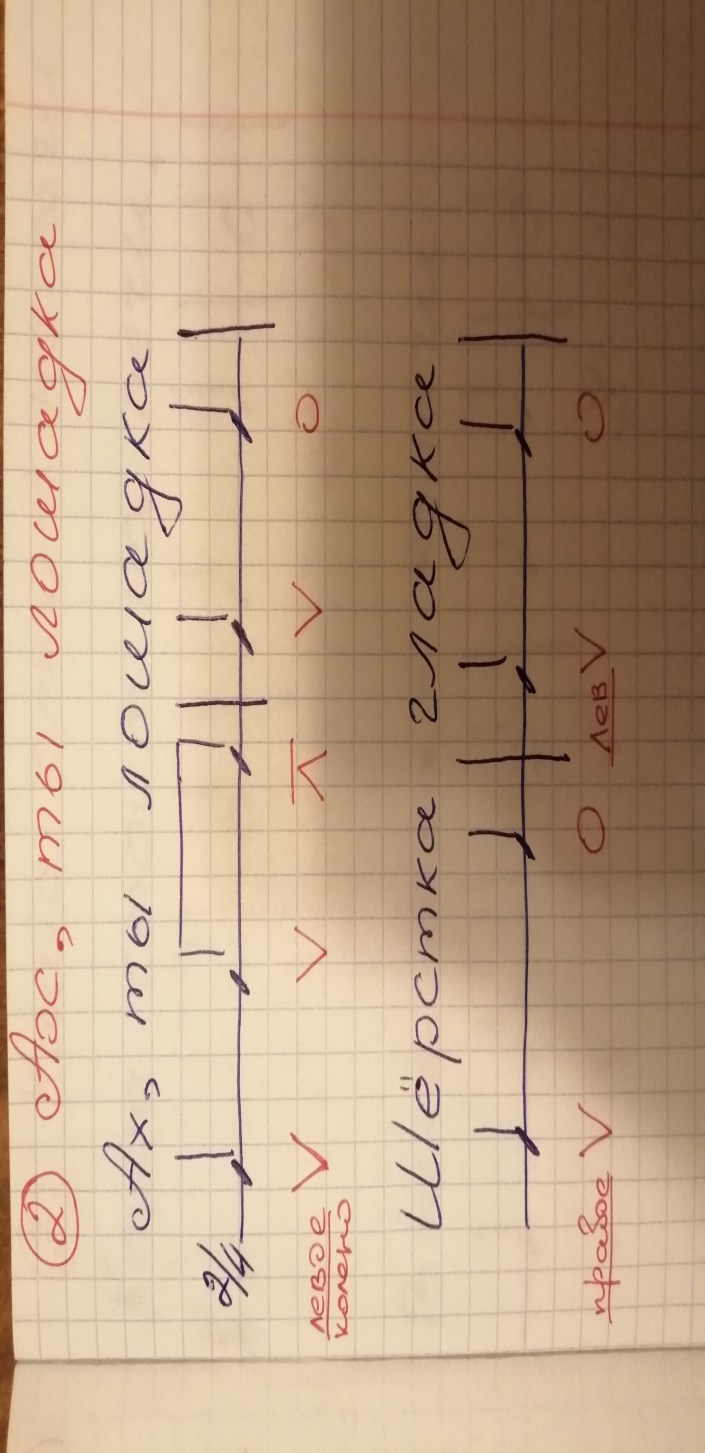 ② Ах, ты лошадка
Ах, ты лошадка
2/4
левое колено V V П V О
Шёрстка гладка
правое V О лев V О